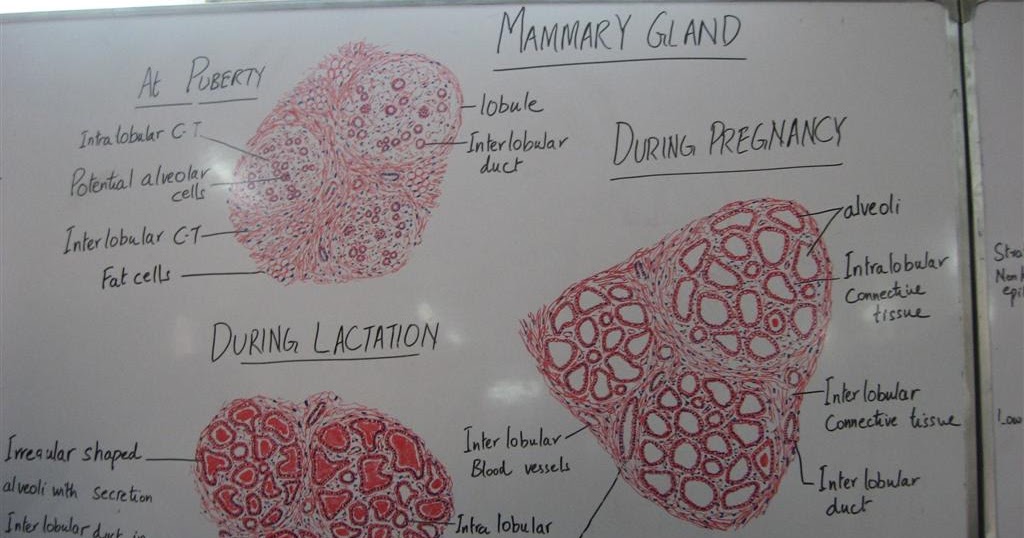 MAMMARY GLAND
At PUBERTY
Intralobular C.T.
Potential alveolar
cells
Interlobular C-T
Fat cells
lobule
Interlobular
duct
DURING PREGNANCY
alveoli
Intralobular
Connective
tissue
Interlobular
Connective tissue
Interlobular
duct
Interlobular
Blood vessels
DURING LACTATION
Irregular shaped
alveoli with secretion
Interlobular duct
Intralobular
Low